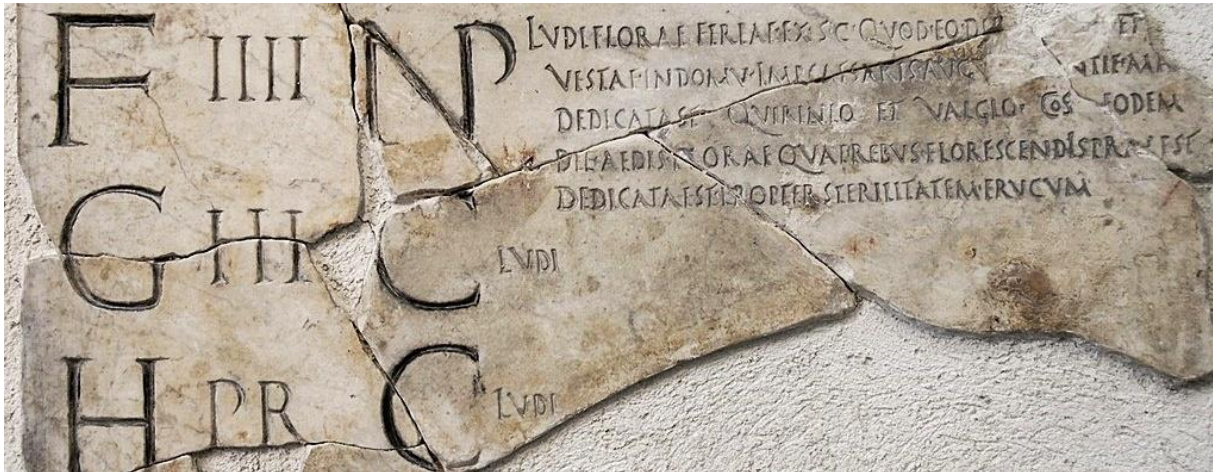 F IIII NP LVDI·FLORAE·FERIAE·EX·S·C·QVOD·EO·DI ET
VESTAE·IN·DOMV·IMP·CAESARIS·AVGV NTIF·MA
DEDICATAST QVIRINIO ET VALGIO· COS EODEM
DIE·AEDIS·FLORAE·QVAE·REBVS·FLORESCENDIS·PRAEEST
DEDICATA·EST·PROPTER·STERILITATEM·FRVGVM
G III C LVDI
H PR C LVDI